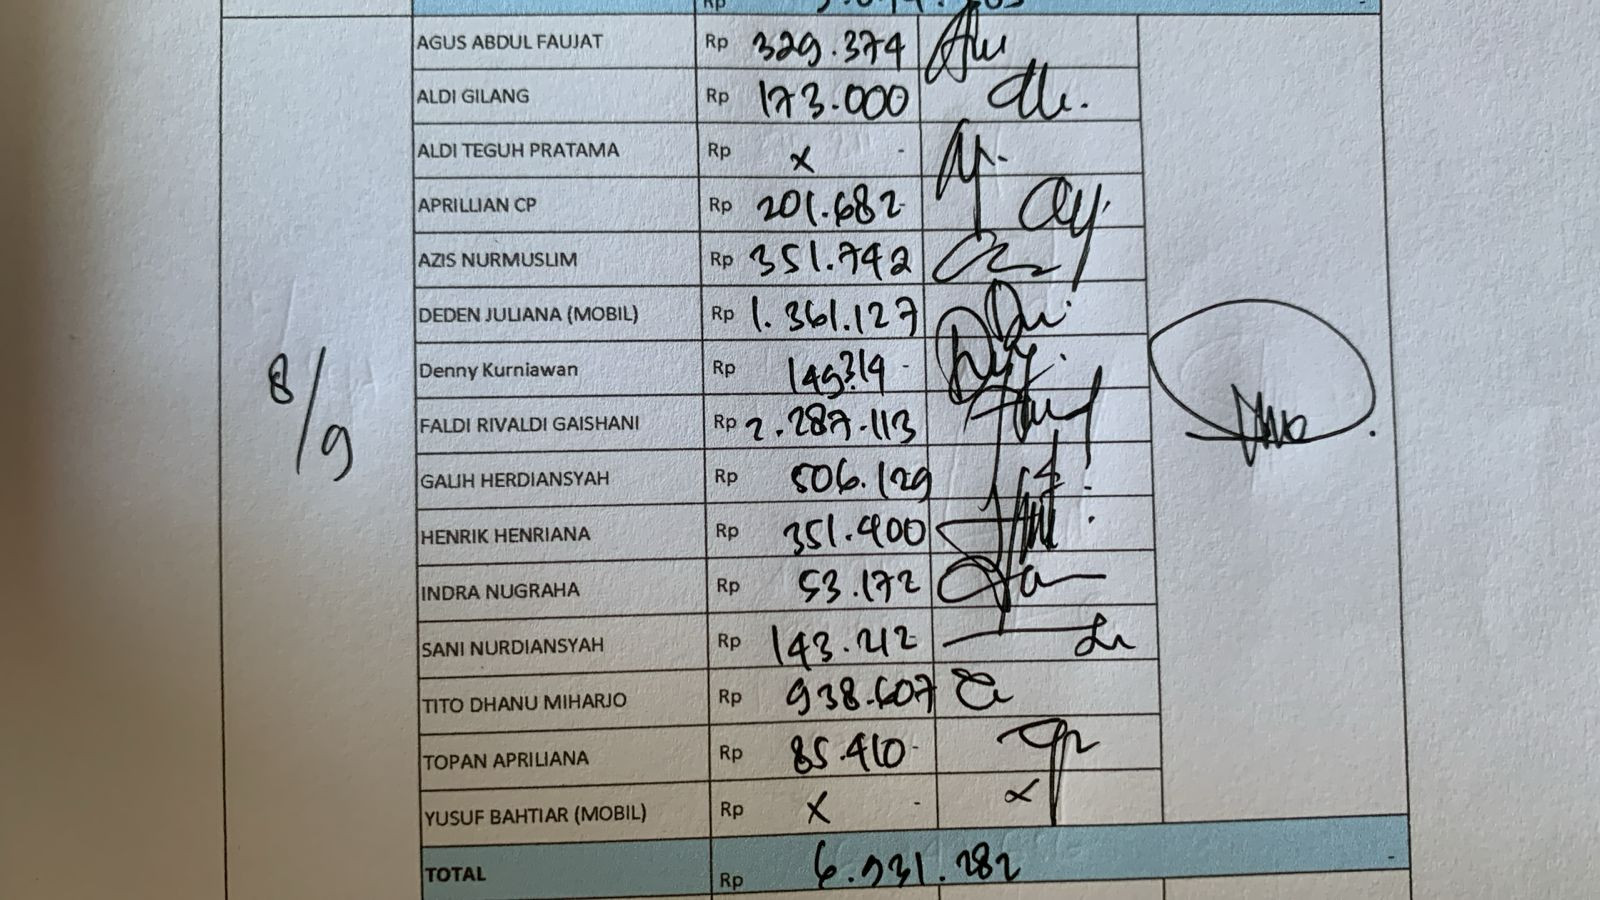 AGUS ABDUL FAUJAT Rp 329.374
ALDI GILANG Rp 173.000
ALDI TEGUH PRATAMA Rp x -
APRILLIAN CP Rp 201.682
AZIS NURMUSLIM Rp 351.742
DEDEN JULIANA (MOBIL) Rp 1.361.127
Denny Kurniawan Rp 149314 -
8/9
FALDI RIVALDI GAISHANI Rp 2.287.113
GALIH HERDIANSYAH Rp 506.129
HENRIK HENRIANA Rp 351.400
INDRA NUGRAHA Rp 53.172
SANI NURDIANSYAH Rp 143.212
TITO DHANU MIHARJO Rp 938.607
TOPAN APRILIANA Rp 85.410 -
YUSUF BAHTIAR (MOBIL) Rp x - x
TOTAL Rp 6.931.282 -